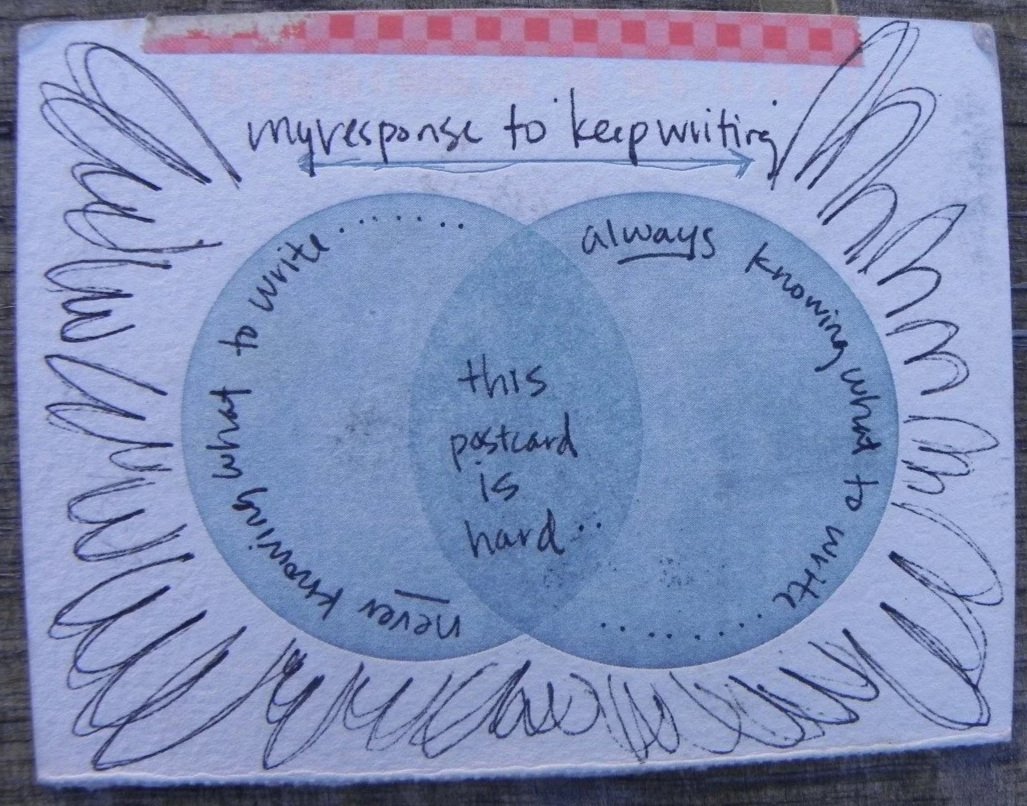 my response to keep writing
never knowing what to write.......
always knowing what to write.........
this
postcard
is
hard...